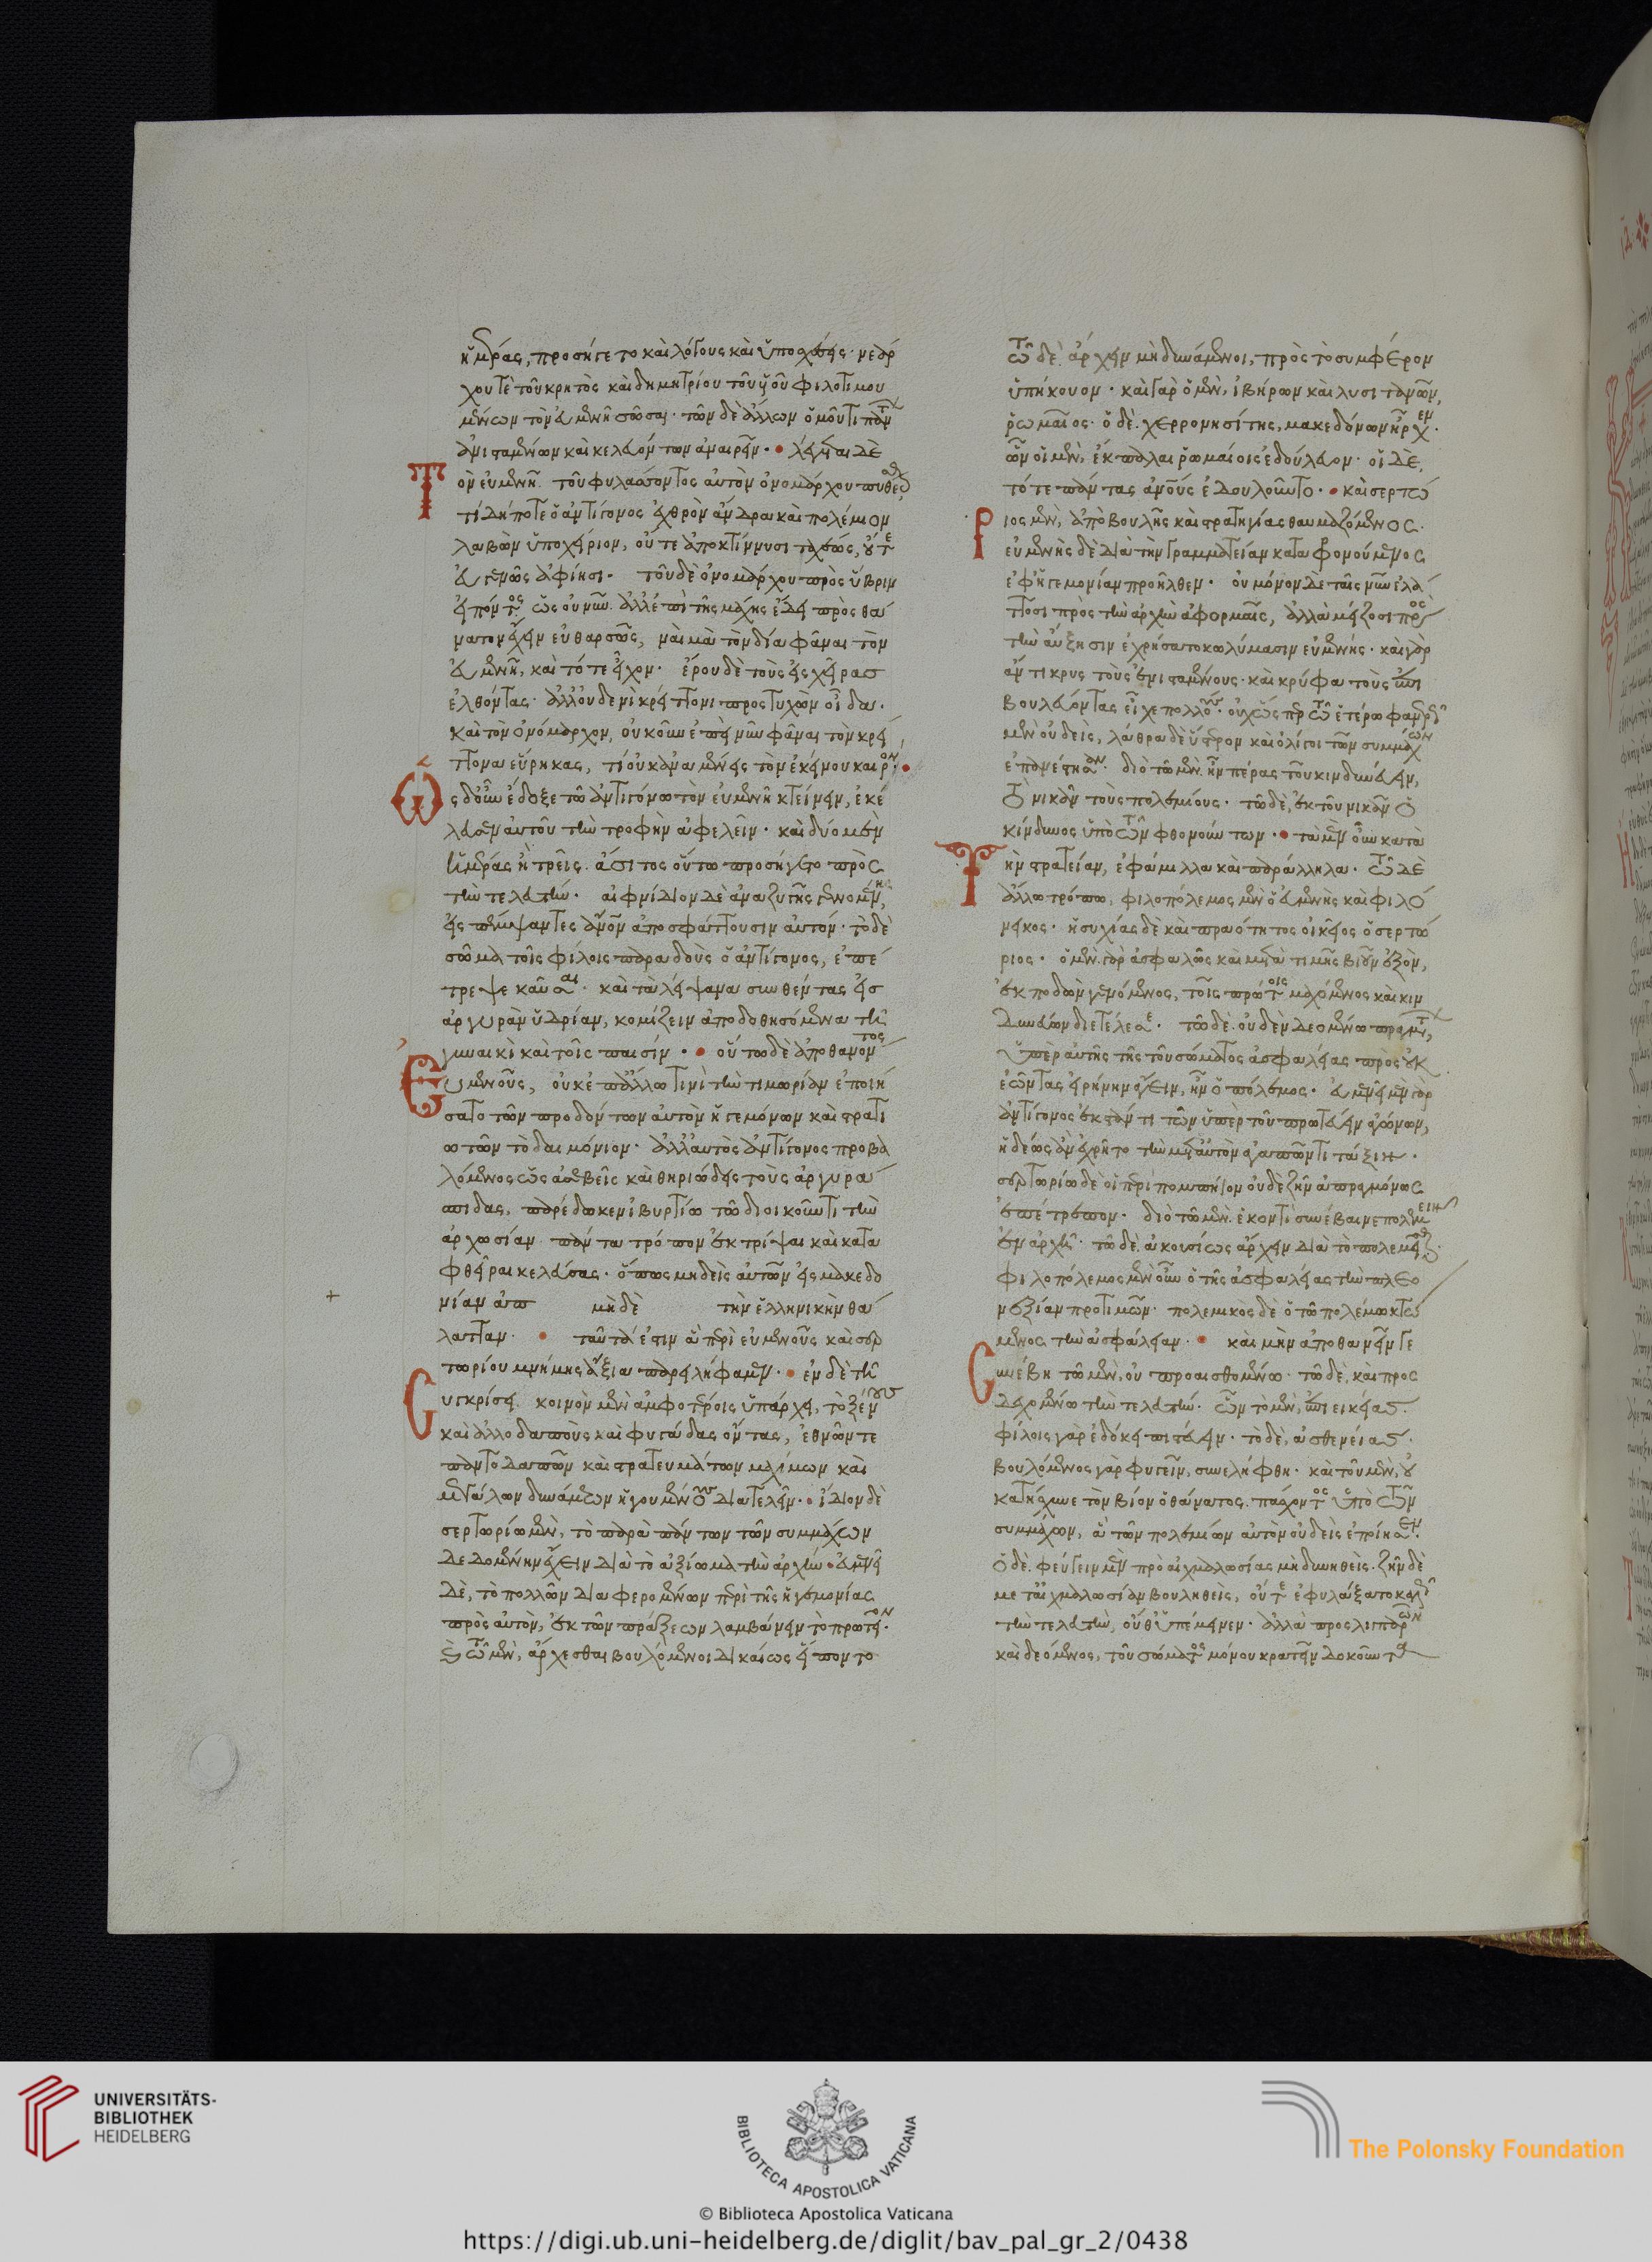 ἡμέρας, προσήγετο καὶ λόγους καὶ ὑποσχέσεις· νεάρ
χου τὲ τοῦ κρητὸς καὶ δημητρίου τοῦ υἱοῦ φιλοτιμου
μένων τὸν εὐμενῆ σῶσαι· τῶν δὲ ἄλλων ὁμοῦ τι πάντων
ἐνισταμένων καὶ κελευόντων ἀναιρεῖν· λέγεται δὲ
Τὸν εὐμενῆ τοῦ φυλάσσοντος αὐτὸν ὀνομάρχου πυθέσθαι
τί δήποτε ὁ ἀντίγονος ἐχθρὸν ἄνδρα καὶ πολέμιον
λαβὼν ὑποχείριον, οὔτε ἀποκτίννυσι ταχέως, οὔτε
εὐγενῶς ἀφίησι· τοῦ δὲ ὀνομάρχου πρὸς ὕβριν
εἰπόντος ὡς οὐ νῦν. ἀλλ' ἐπὶ τῆς μάχης ἔδει πρὸς θά
νατον ἔχειν εὐθαρσῶς, ναὶ μὰ τὸν δία φάναι τὸν
εὐμενῆ, καὶ τότε εἶχον· ἐροῦ δὲ τοὺς εἰς χεῖρας
ἐλθόντας· ἀλλ' οὐδενὶ κρείττονι προστυχὼν οἶδα·
καὶ τὸν ὀνόμαρχον, οὐκοῦν ἐπεὶ νῦν φάναι τὸν κρεί
ττονα εὕρηκας, τί οὐκ ἀναμένεις τὸν ἐκείνου καιρόν·
Ὡς δ' οὖν ἔδοξε τῶ ἀντιγόνω τὸν εὐμενῆ κτείνειν, ἐκέ
λευσεν αὐτοῦ τὴν τροφὴν ἀφελεῖν· καὶ δύο μὲν
ἡμέρας ἢ τρεῖς. ἄσιτος οὕτω προσήγετο πρὸς
τὴν τελευτήν· αἰφνίδιον δὲ ἀναζυγῆς γενομένης,
εἰσπέμψαντες ἄνθρωπον ἀποσφάττουσιν αὐτόν· τὸ δὲ
σῶμα τοῖς φίλοις παραδοὺς ὁ ἀντίγονος, ἐπέ
τρεψε καῦσαι· καὶ τὰ λείψανα συνθέντας εἰς
ἀργυρὰν ὑδρίαν, κομίζειν ἀποδοθησόμενα τῆ
γυναικὶ καὶ τοῖς παισίν· οὕτω δὲ ἀποθανόντος
Εὐμενοῦς, οὐκ ἐπ' ἄλλω τινὶ τὴν τιμωρίαν ἐποιή
σατο τῶν προδόντων αὐτὸν ἡγεμόνων καὶ στρατι
ωτῶν τὸ δαιμόνιον· ἀλλ' αὐτὸς ἀντίγονος προβα
λόμενος ὡς ἀσεβεῖς καὶ θηριώδεις τοὺς ἀργυρά
σπιδας, παρέδωκεν ἰβυρτίω τῶ διοικοῦντι τὴν
ἀρχωσίαν πάντα τρόπον ἐκτρίψαι καὶ κατα
φθεῖραι κελεύσας· ὅπως μηδεὶς αὐτῶν εἰς μακεδο
νίαν ἀπ μὴ δὲ τὴν ἑλληνικὴν θά
λατταν· ταῦτά ἐστιν ἃ περὶ εὐμενοῦς καὶ σερ
τωρίου μνήμης ἄξια παρειλήφαμεν· ἐν δὲ τῆ
Συγκρίσει. κοινὸν μὲν ἀμφοτέροις ὑπάρχει, τὸ ξένους
καὶ ἀλλοδαποὺς καὶ φυγάδας ὄντας, ἐθνῶν τε
παντοδαπῶν καὶ στρατευμάτων μαχίμων καὶ
μεγάλων δυνάμεων ἡγουμένους διατελεῖν· ἴδιον δὲ
σερτωρίω μὲν, τὸ παρὰ πάντων τῶν συμμάχων
δεδομένην ἔχειν διὰ τὸ ἀξίωμα τὴν ἀρχήν· εὐμενεῖ
δὲ, τὸ πολλῶν διαφερομένων περὶ τῆς ἡγεμονίας
πρὸς αὐτὸν, ἐκ τῶν πράξεων λαμβάνειν τὸ πρωτεῖον·
καὶ τῶ μὲν, ἄρχεσθαι βουλόμενοι δικαίως εἵποντο
τῶ δὲ ἄρχειν μὴ δυνάμενοι, πρὸς τὸ συμφέρον
ὑπήκουον· καὶ γὰρ ὁ μὲν, ἰβήρων καὶ λυσιτανῶν,
ῥωμαῖος· ὁ δὲ. χερρονησίτης, μακεδόνων ἦρχεν·
ὧν οἱ μὲν, ἔκπαλαι ῥωμαίοις ἐδούλευον· οἱ δὲ,
τότε πάντας ἀνθρώπους ἐδουλοῦντο· καὶ σερτώ
Ριος μὲν, ἀπὸ βουλῆς καὶ στρατηγίας θαυμαζόμενος·
εὐμένης δὲ διὰ τὴν γραμματείαν καταφρονούμενος
ἐφ' ἡγεμονίαν προῆλθεν· οὐ μόνον δὲ ταῖς νῦν ἐλά
ττοσι πρὸς τὴν ἀρχὴν ἀφορμαῖς, ἀλλὰ μείζοσι πρὸς
τὴν αὔξησιν ἐχρήσατο κωλύμασιν εὐμένης· καὶ γὰρ
ἄντικρυς τοὺς ἐνισταμένους· καὶ κρύφα τοὺς ἐπι
βουλεύοντας εἶχε πολλούς· οὐχ ὡς περ τῶ ἑτέρω φανερῶς
μὲν οὐδεὶς, λάθρα δὲ ὕστερον καὶ ὀλίγοι τῶν συμμάχων
ἐπανέστησαν· διὸ τῶ μὲν. ἦν πέρας τοῦ κινδυνεύειν,
τὸ νικᾶν τοὺς πολεμίους· τῶ δὲ, ἐκ τοῦ νικᾶν ὁ
κίνδυνος ὑπὸ τῶν φθονούντων· τὰ μὲν οὖν κατὰ
Τὴν στρατείαν, ἐφάμιλλα καὶ παράλληλα· τῶ δὲ
ἄλλω τρόπω, φιλοπόλεμος μὲν ὁ εὐμένης καὶ φιλό
νεικος· ἡσυχίας δὲ καὶ πραότητος οἰκεῖος ὁ σερτώ
ριος· ὁ μὲν. γὰρ ἀσφαλῶς καὶ μετὰ τιμῆς βιοῦν ἐξὸν,
ἐκποδὼν γενόμενος, τοῖς πρώτοις μαχόμενος καὶ κιν
δυνεύων διετέλεσε· τῶ δὲ. οὐδὲν δεομένω πραγμάτων,
ὑπὲρ αὐτῆς τῆς τοῦ σώματος ἀσφαλείας πρὸς οὐκ
ἐῶντας εἰρήνην ἄγειν, ἦν ὁ πόλεμος· εὐμενεῖ μὲν γὰρ
ἀντίγονος ἐκστάντι τῶν ὑπὲρ τοῦ πρωτεύειν ἀγώνων,
ἡδέως ἂν ἐχρῆτο τὴν μετ' αὐτὸν ἀγαπῶντι τάξιν·
σερτωρίω δὲ οἱ περὶ πομπήιον οὐδὲ ζῆν ἀπραγμόνως
ἐπέτρεπον· διὸ τῶ μὲν. ἑκοντὶ συνέβαινε πολεμεῖν
ἐπ' ἀρχῆ· τῶ δὲ. ἀκουσίως ἄρχειν διὰ τὸ πολεμεῖσθαι·
φιλοπόλεμος μὲν οὖν ὁ τῆς ἀσφαλείας τὴν πλεο
νεξίαν προτιμῶν· πολεμικὸς δὲ ὁ τῶ πολέμω κτώ
μενος τὴν ἀσφάλειαν· καὶ μὴν ἀποθανεῖν γε
Συνέβη τῶ μὲν, οὐ προαισθομένω· τῶ δὲ, καὶ προσ
δεχομένω τὴν τελευτήν· ὧν τὸ μὲν, ἐπιεικείας·
φίλοις γὰρ ἐδόκει πιστεύειν· τὸ δὲ, ἀσθενείας·
βουλόμενος γὰρ φυγεῖν, συνελήφθη· καὶ τοῦ μὲν, οὐ
κατήσχυνε τὸν βίον ὁ θάνατος. πάσχοντος ὑπὸ τῶν
συμμάχων, ἃ τῶν πολεμίων αὐτὸν οὐδεὶς ἐποίησεν·
ὁ δὲ. φεύγειν μὲν πρὸ αἰχμαλωσίας μὴ δυνηθεὶς. ζῆν δὲ
μετ' αἰχμαλωσίαν βουληθεὶς, οὔτε ἐφυλάξατο καλῶς
τὴν τελευτὴν, οὔθ' ὑπέμεινεν· ἀλλὰ προσλιπαρῶν
καὶ δεόμενος, τοῦ σώματος μόνου κρατεῖν δοκοῦντα
UNIVERSITÄTS-
BIBLIOTHEK
HEIDELBERG
BIBLIOTECA APOSTOLICA VATICANA
The Polonsky Foundation
© Biblioteca Apostolica Vaticana
https://digi.ub.uni-heidelberg.de/diglit/bav_pal_gr_2/0438